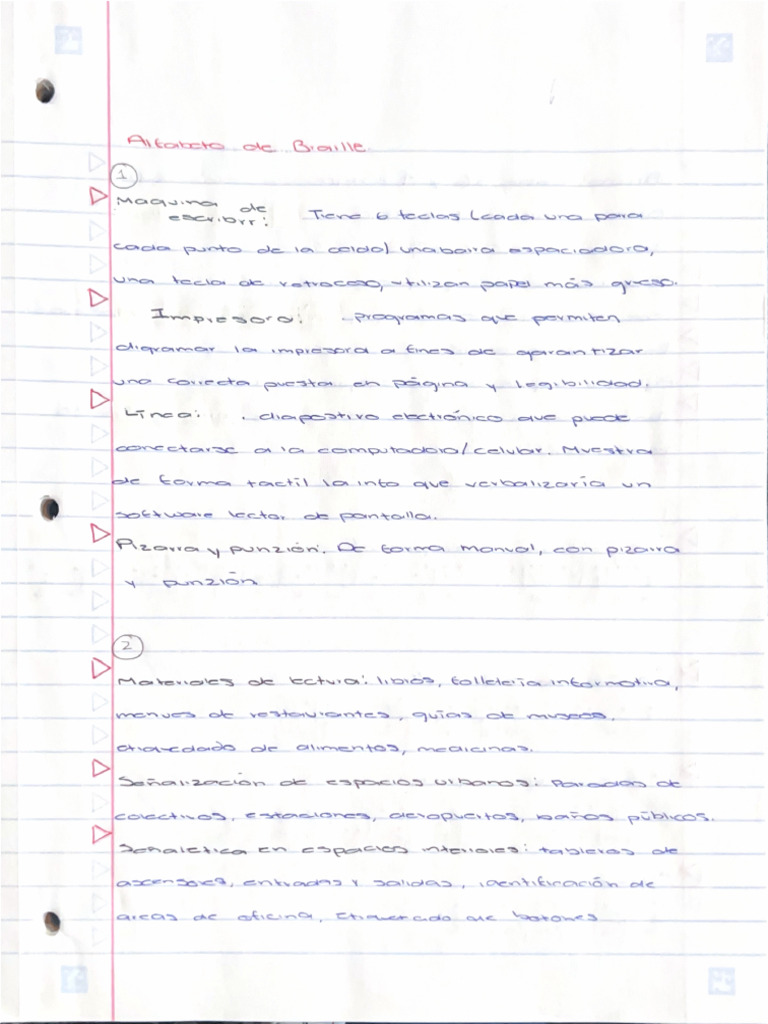 Alfabeto de Braille.
1
Maquina de escribrr: Tiene 6 teclas (cada una para
cada punto de la celda) una barra espaciadora,
una tecla de retroceso, utilizan papel más grueso.
Impresora: programas que permiten
digramar la impresora a fines de garantizar
una correcta puestar en página y legibilidad.
Línea: . diapostivo electrónico que puede
conectarse a la computadora/celular. Muestra
de forma tactil la info que verbalizaría un
software lector de pantalla.
Pizarra y punzión: De forma manual, con pizarra
y punzión
2
Materiales de lectura: libros, folletería informativa,
menues de restaurantes, guías de museos.
etiquedado de alimentos, medicinas.
Señalización de espacios urbanos: Paradas de
colectivos, estaciones, aeropuertos, baños públicos.
Señaletica en espacios interiores: tableros de
ascensores, entradas y salidas, identificación de
áreas de oficina, Etiquetado de botones